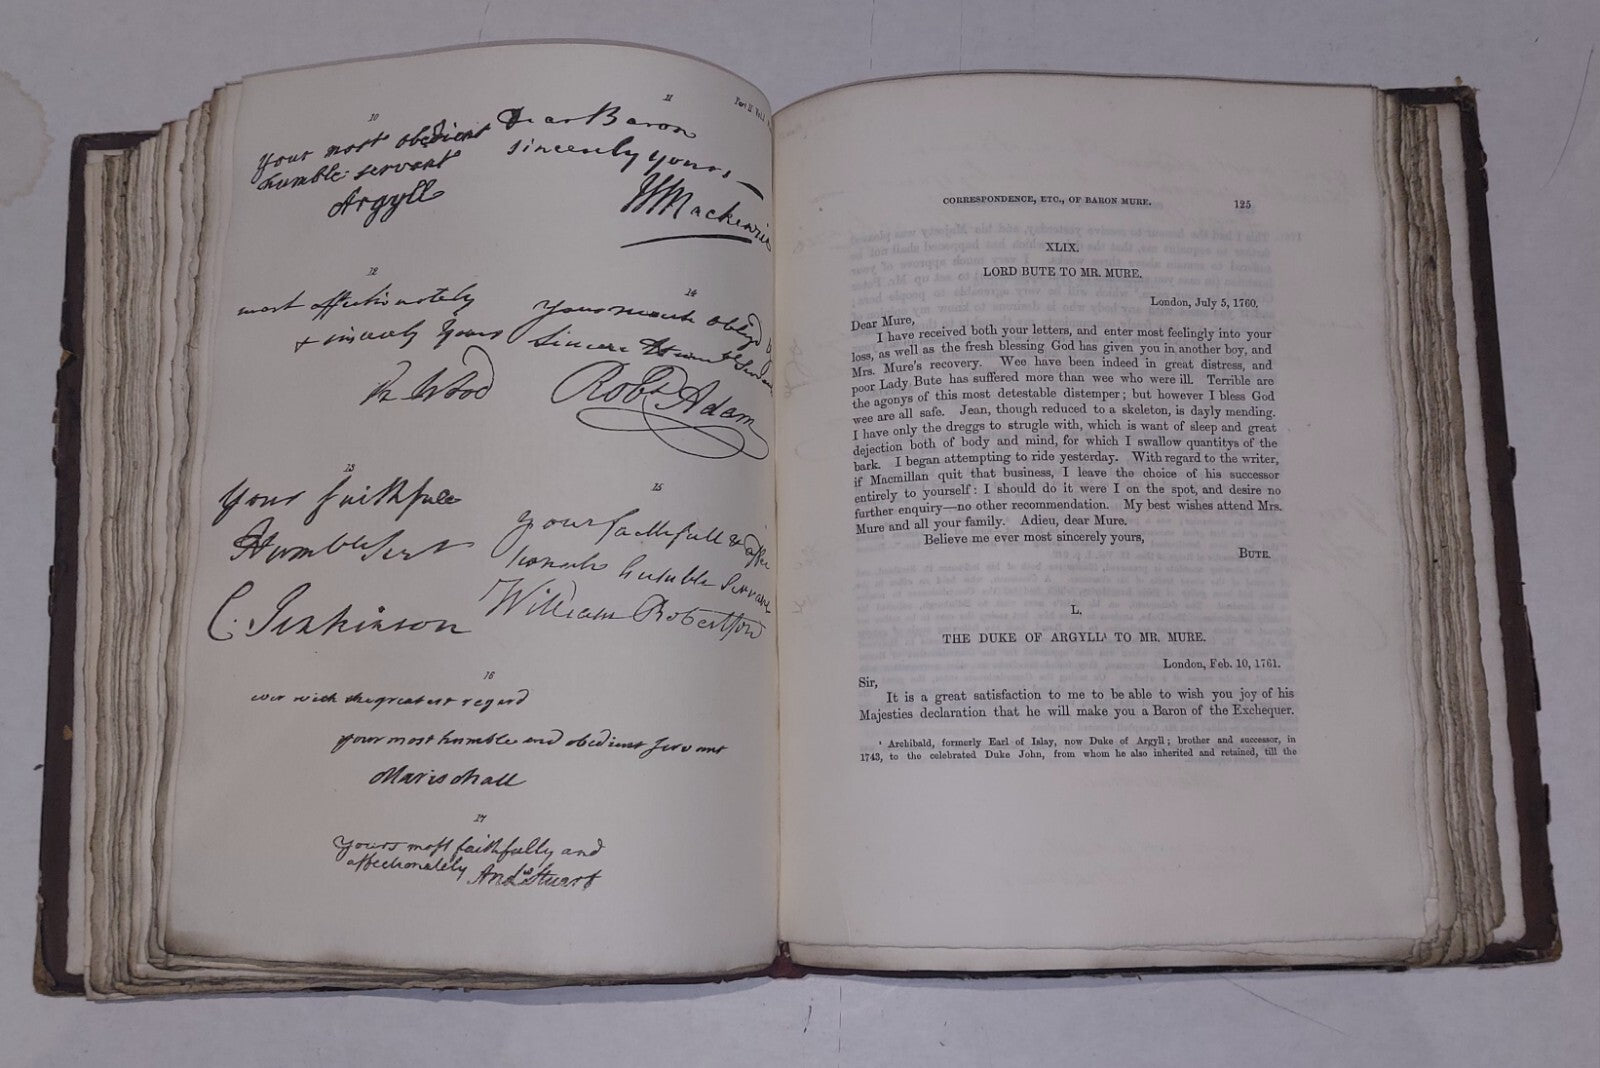 Part II Vol. I.
10
Your most obedient
humble servant
Argyll
11
Dear Baron
sincerely yours
Mackenzie
12
most affectionately
& sincerely Yours
R Wood
14
Your much oblig'd
Sincere Humble Servant
Robt. Adam
13
Your faithfull
Humble Sert
C. Jenkinson
15
Your faithfull & affec
tionate humble Servant
William Robertson
16
ever with the greatest regard
your most humble and obedient servant
Marischall
17
Yours most faithfully and
affectionately Andw Stuart
CORRESPONDENCE, ETC., OF BARON MURE. 125
XLIX.
LORD BUTE TO MR. MURE.
London, July 5, 1760.
Dear Mure,
I have received both your letters, and enter most feelingly into your
loss, as well as the fresh blessing God has given you in another boy, and
Mrs. Mure's recovery. Wee have been indeed in great distress, and
poor Lady Bute has suffered more than wee who were ill. Terrible are
the agonys of this most detestable distemper; but however I bless God
wee are all safe. Jean, though reduced to a skeleton, is dayly mending.
I have only the dreggs to strugle with, which is want of sleep and great
dejection both of body and mind, for which I swallow quantitys of the
bark. I began attempting to ride yesterday. With regard to the writer,
if Macmillan quit that business, I leave the choice of his successor
entirely to yourself: I should do it were I on the spot, and desire no
further enquiry—no other recommendation. My best wishes attend Mrs.
Mure and all your family. Adieu, dear Mure.
Believe me ever most sincerely yours,
BUTE.
L.
THE DUKE OF ARGYLL¹ TO MR. MURE.
London, Feb. 10, 1761.
Sir,
It is a great satisfaction to me to be able to wish you joy of his
Majesties declaration that he will make you a Baron of the Exchequer.
¹ Archibald, formerly Earl of Islay, now Duke of Argyll; brother and successor, in
1743, to the celebrated Duke John, from whom he also inherited and retained, till the